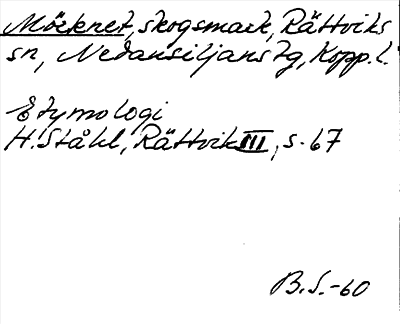 Mörknet, skogsmark, Rättviks
sn, Nedansiljans tg, Kopp. l.
Etymologi
H. Ståhl, Rättvik III, s. 67
B. S. -60